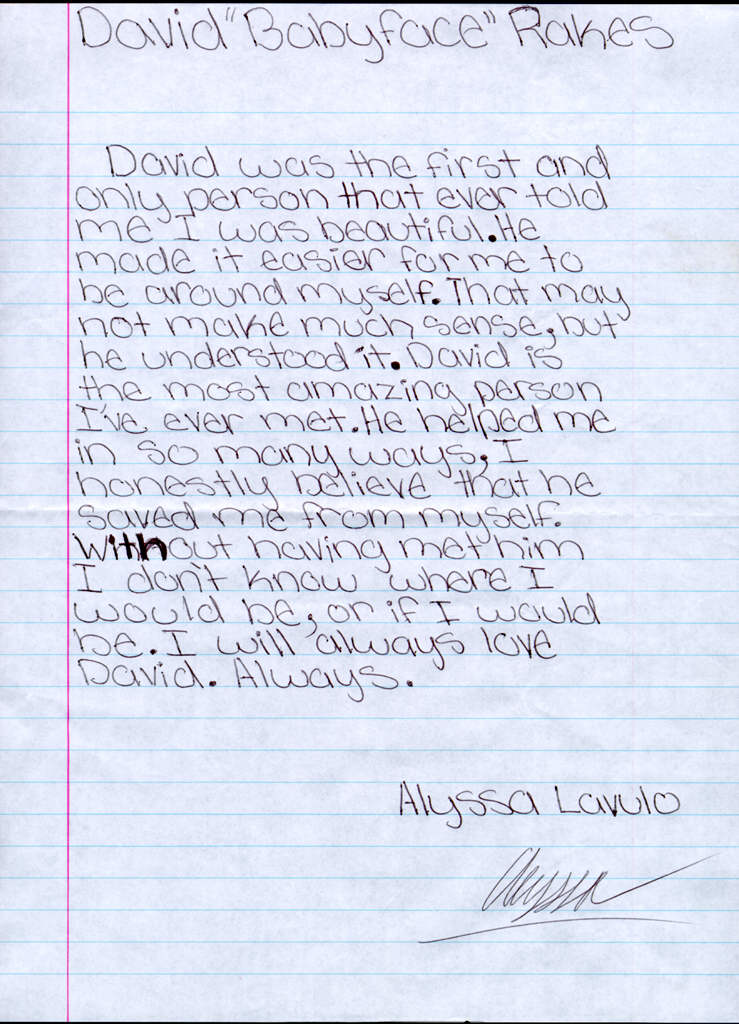 David "Babyface" Rakes
David was the first and
only person that ever told
me I was beautiful. He
made it easier for me to
be around myself. That may
not make much sense, but
he understood it. David is
the most amazing person
I've ever met. He helped me
in so many ways, I
honestly believe that he
saved me from myself.
Without having met him
I don't know where I
would be, or if I would
be. I will always love
David. Always.
Alyssa Lavulo
Alyssa